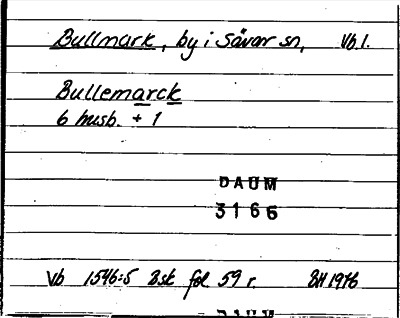 Bullmark, by i Sävar sn, Vb l.
Bullemarck
6 husb. + 1
DAUM
3166
Vb 1546:5 Bsk fol 59 r. BH 1976
DAUM